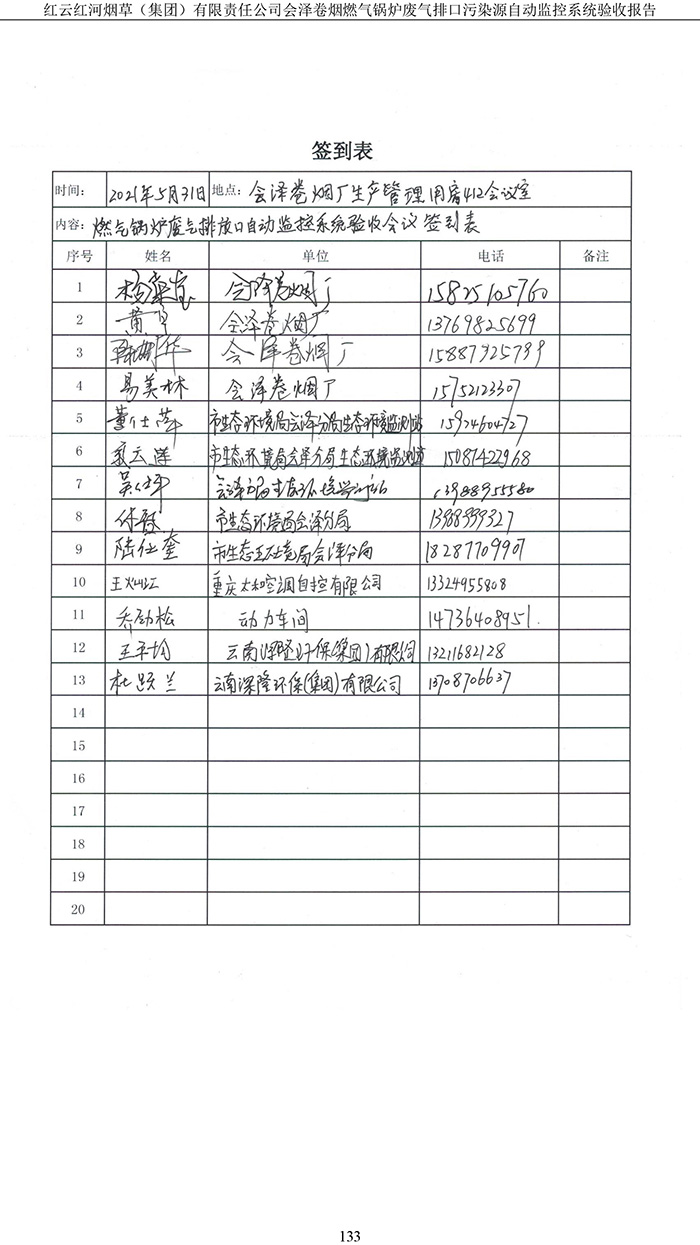 红云红河烟草（集团）有限责任公司会泽卷烟燃气锅炉废气排口污染源自动监控系统验收报告
签到表
时间： 2021年5月31日 地点： 会泽卷烟厂生产管理用房412会议室
内容：燃气锅炉废气排放口自动监控系统验收会议 签到表
序号 姓名 单位 电话 备注
1 会泽卷烟厂 15825105760
2 会泽卷烟厂 13769825699
3 会泽卷烟厂
4 易美林 会泽卷烟厂 15752123307
5 董仕萍 市生态环境局会泽分局生态环境监测站 15924604727
6 市生态环境局会泽分局生态环境监测站 15087422968
7 13988955580
8 市生态环境局会泽分局
9 陆仕奎 市生态环境局会泽分局 18287709907
10 重庆太和空调自控有限公司 13324955808
11 乔劲松 动力车间 14736408951.
12 云南深隆环保(集团)有限公司 13211682128
13 云南深隆环保(集团)有限公司 13708706637
14
15
16
17
18
19
20
133